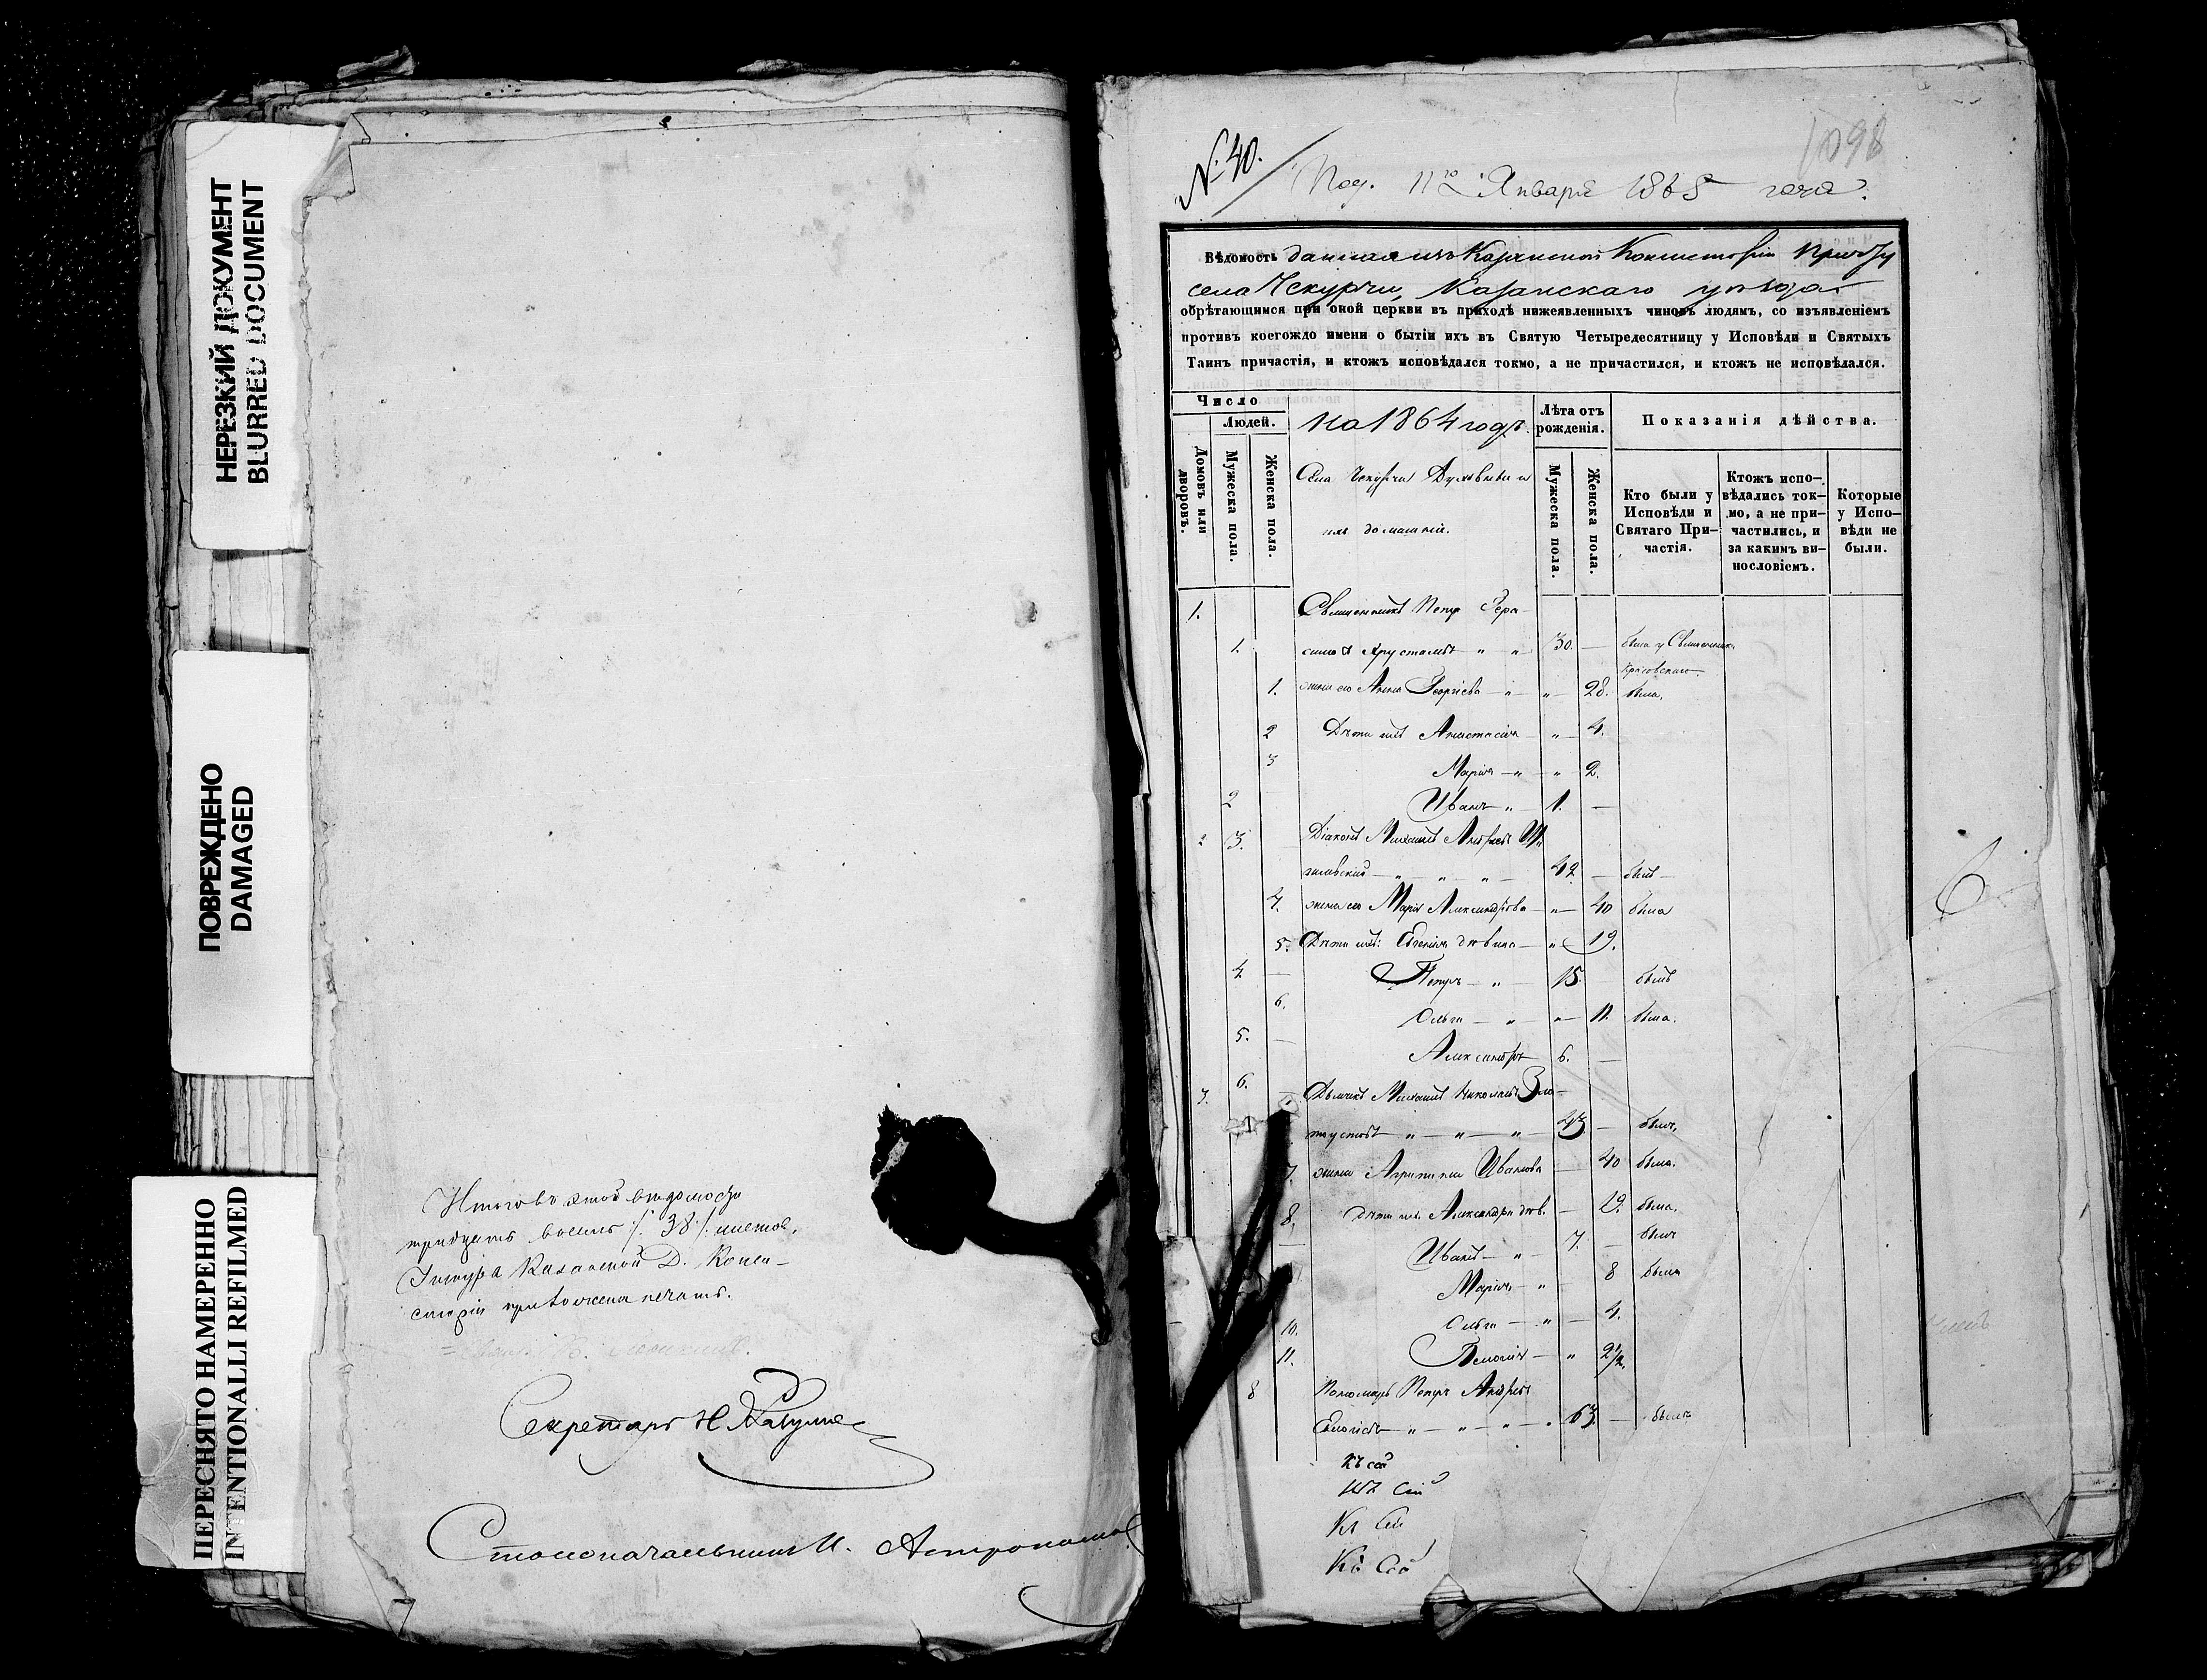 НЕРЕЗКИЙ ДОКУМЕНТ
BLURRED DOCUMENT
ПОВРЕЖДЕНО
DAMAGED
ПЕРЕСНЯТО НАМЕРЕННО
INTENTIONALLI REFILMED
Итого въ этой ведомости
тридцать восемь /. 38 /. листов,
Казанской Д. Конси-
сторіи приложена печать.
Секретарь Н.
Столоначальникъ И. Астрономов
1098
№ 40.
Под. 11го Января 1865 года.
Вѣдомость данная изъ Казанской Консисторіи Причту
села Чекурчи, Казанскаго уѣзда
обрѣтающимся при оной церкви въ приходѣ нижеявленныхъ чиновъ людямъ, со изъявленіемъ
противъ коегождо имени о бытіи ихъ въ Святую Четыредесятницу у Исповѣди и Святыхъ
Таинъ причастія, и ктожъ исповѣдался токмо, а не причастился, и ктожъ не исповѣдался.
Число
Людей.
Домовъ или дворовъ.
Мужеска пола.
Женска пола.
на 1864 годъ.
Села Чекурчи Духовные и
ихъ домашніе.
Лѣта отъ рожденія.
Мужеска пола.
Женска пола.
Показанія дѣйства.
Кто были у Исповѣди и Святаго Причастія.
Ктожъ исповѣдались токмо, а не причастились, и за какимъ винословіемъ.
Которые у Исповѣди не были.
1. Священникъ Петръ Гера-
1. симовъ Хрусталевъ " " 30. — былъ у Священника
1. жена его Анна Георгіева " " 28. была.
2 Дѣти ихъ Анастасія " 4.
3 Марія " " 2.
2 Иванъ " 1. —
2 3. Діаконъ Михаилъ Андреевъ
" " " 42 — былъ
4. жена его Марія Александрова " 40 была
5. Дѣти ихъ: Евгенія дѣвица " 19.
4 — Петръ " 15. былъ
6. Ольга " " 11. была.
5. — Александръ 6. —
3. 6. — Дьячокъ Михаилъ Николаевъ Зла-
тоустовъ " " " 43. — былъ.
7. жена Агрипина Иванова — 40 была.
8. Дѣти их. Александра дѣв. — 19. была.
Иванъ " 7. — былъ
Марія " — 8 была
10. Ольга " — 4.
11. " 2 1/2.
8 Пономарь Петръ Андреевъ
" " " 63. — былъ
Къ сей
Къ сей
Къ сей
Къ сей